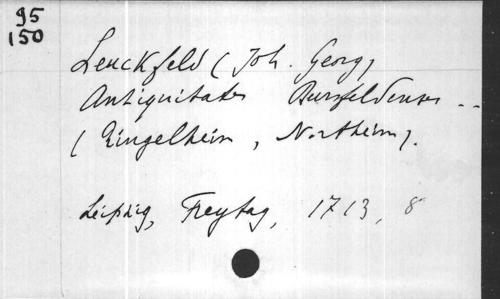 95
150
Leuckfeld (Joh. Georg)
Antiquitates Bursfeldenses ..
(Ringelheim, Northeim).
Leipzig, Freytag, 1713, 8